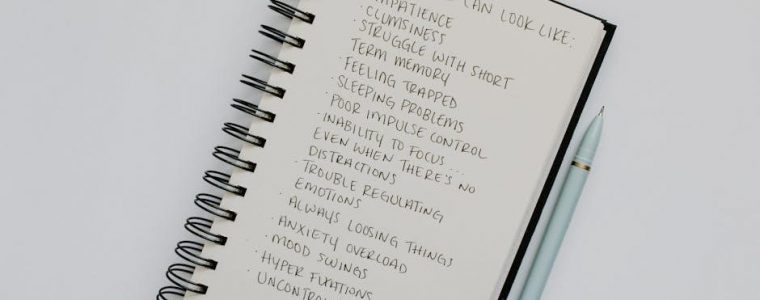 CAN LOOK LIKE:
· CLUMSINESS
· STRUGGLE WITH SHORT
TERM MEMORY
· FEELING TRAPPED
· SLEEPING PROBLEMS
· POOR IMPULSE CONTROL
· INABILITY TO FOCUS...
EVEN WHEN THERE'S NO
DISTRACTIONS
· TROUBLE REGULATING
EMOTIONS
· ALWAYS LOOSING THINGS
· ANXIETY OVERLOAD
· MOOD SWINGS
· HYPER FIXATIONS